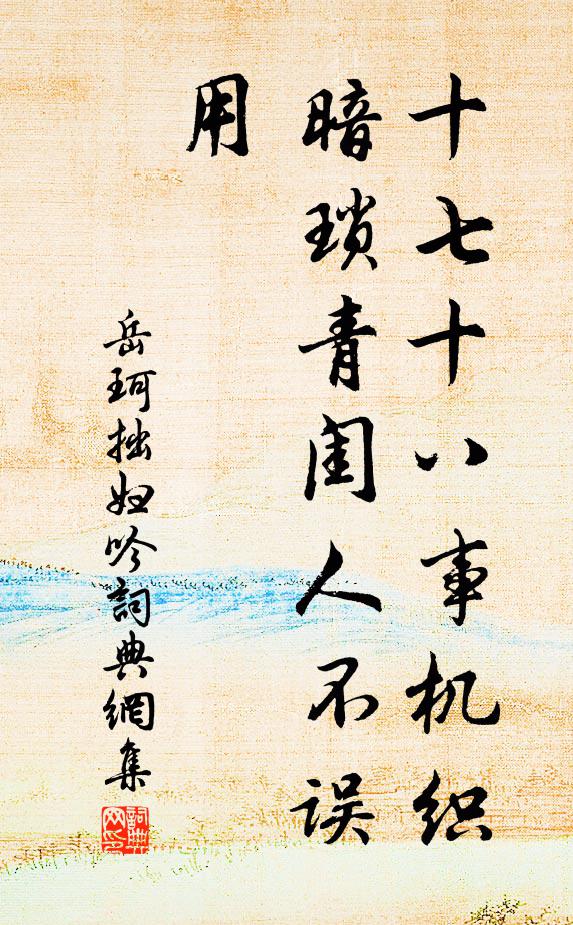 十七十八事机织
暗琐青闺人不误
用
岳珂拙妇吟詞典網集
詞典网印